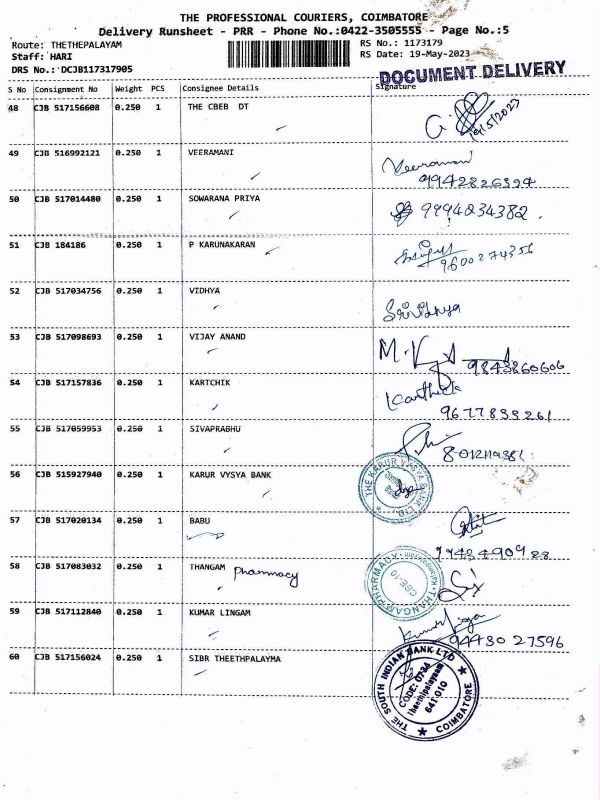 THE PROFESSIONAL COURIERS, COIMBATORE
Delivery Runsheet - PRR - Phone No.:0422-3505555 - Page No.:5
Route: THETHEPALAYAM RS No.: 1173179
Staff: HARI RS Date: 19-May-2023
DRS No.: DCJB117317905
DOCUMENT DELIVERY
S No Consignment No Weight PCS Consignee Details Signature
48 CJB 517156608 0.250 1 THE CBEB DT
49 CJB 516992121 0.250 1 VEERAMANI Veeramani
50 CJB 517014480 0.250 1 SOWARANA PRIYA 9994234382.
51 CJB 184186 0.250 1 P KARUNAKARAN
9600274356
52 CJB 517034756 0.250 1 VIDHYA Srividhya
53 CJB 517098693 0.250 1 VIJAY ANAND
9843860606
54 CJB 517157836 0.250 1 KARTCHIK
9677838261
55 CJB 517059953 0.250 1 SIVAPRABHU
56 CJB 515927940 0.250 1 KARUR VYSYA BANK THE KARUR VYSYA BANK LTD.
57 CJB 517020134 0.250 1 BABU
58 CJB 517083032 0.250 1 THANGAM Pharmacy THANGAM PHARMACY CBE-10
59 CJB 517112840 0.250 1 KUMAR LINGAM
94430 27596
60 CJB 517156024 0.250 1 SIBR THEETHPALAYMA
THE SOUTH INDIAN BANK LTD
CODE: 0734
Theethipalayam
641 010
COIMBATORE